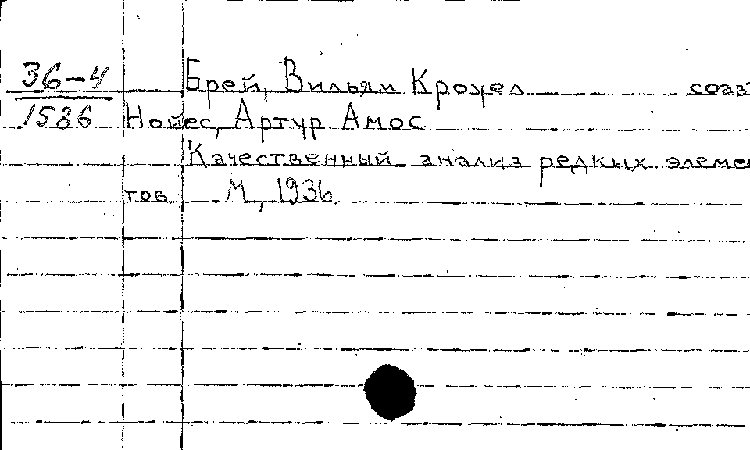 36-4 Брей, Вильям Кроуел соав
1586 Нойес, Артур Амос
Качественный анализ редких элемен
тов М, 1936